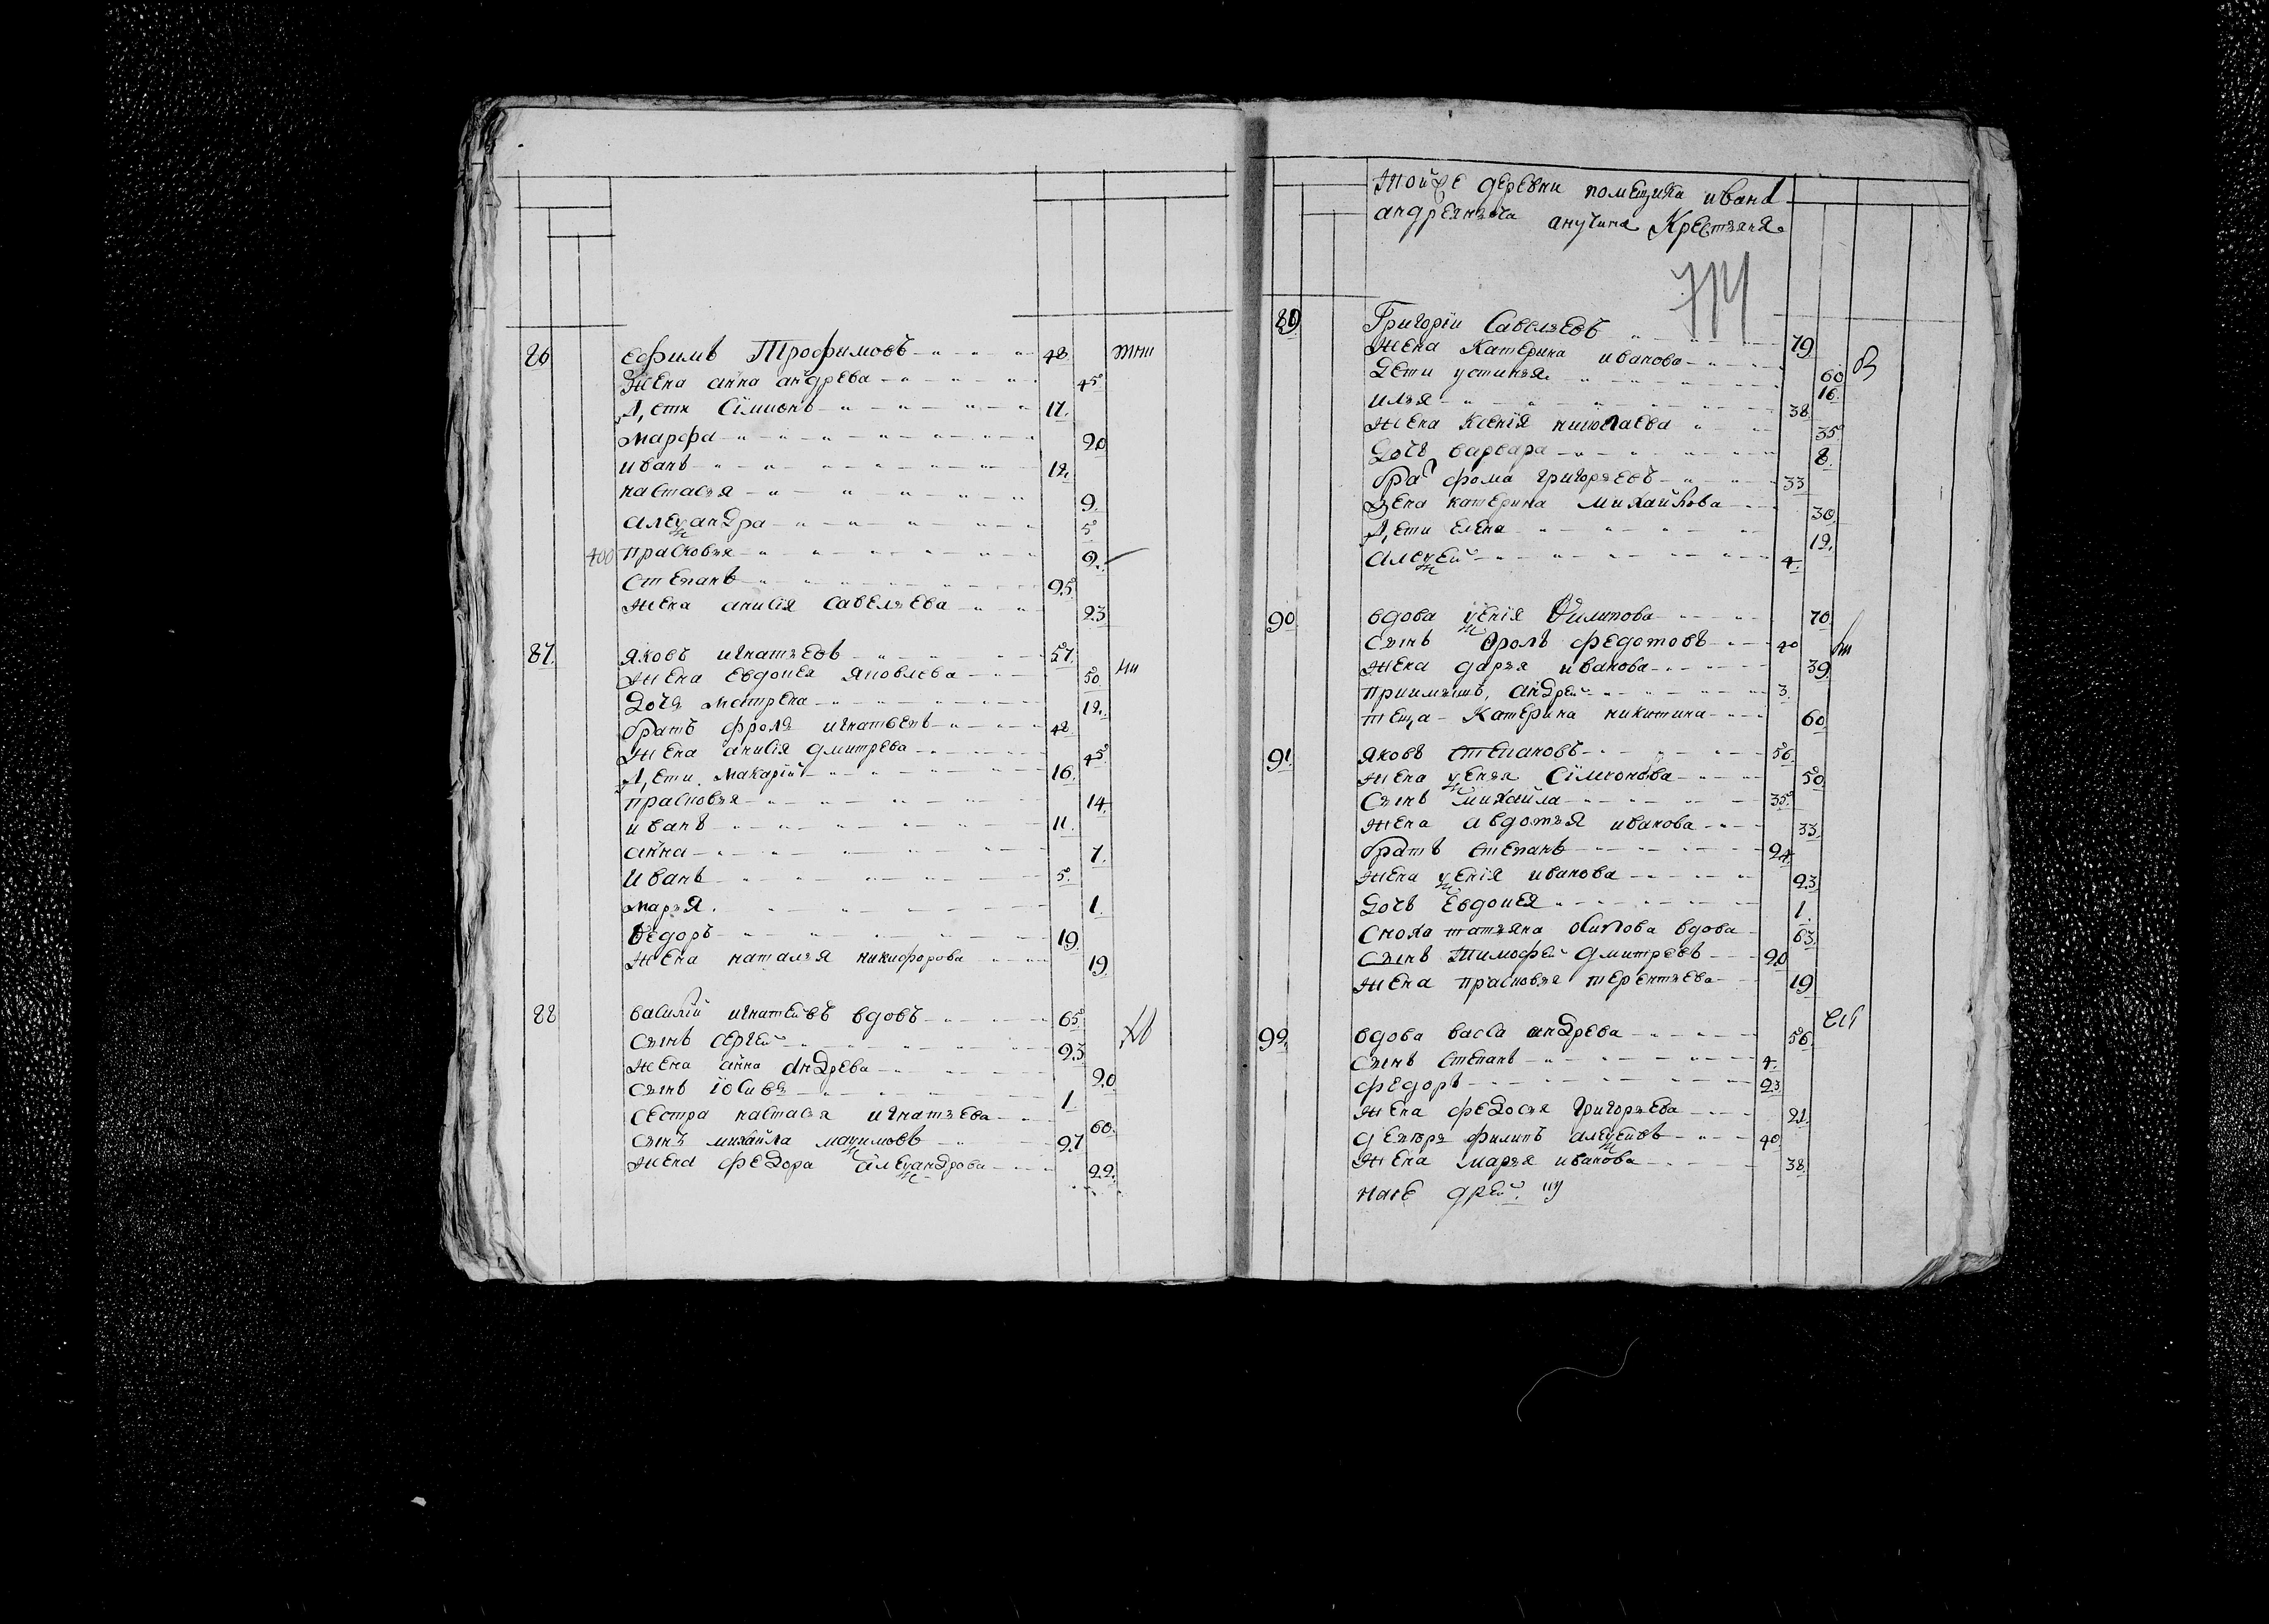 86 ефимъ Трофимовъ 48
Жена анна андрева 45
Дети Симионъ 17.
марфа 20
иванъ 12.
настасья 9.
алеѯандра 5
400 прасковья 2.
Степанъ 25
Жена анисія савельева 23
87. яковъ игнатьевъ 57.
Жена Евдокея яковлева 50
Дочь матрена 12.
братъ фролъ игнатьевъ 48
Жена анисія дмитрева 45
Дети макарій 16.
прасковья 14.
иванъ 11.
анна 7.
иванъ 5.
марья 1.
Ѳедоръ 19
Жена наталья никифорова 19
88 василій игнатьевъ вдовъ 65
Сынъ сергей 23
Жена анна андрева 20
Сынъ іосивъ 1
Сестра настасья игнатьева 60.
Сынъ михайла маѯимовъ 27
Жена федора алеѯандрова 22.
тойже деревни помещика ивана
андреяныча анучина Крестьяня
89 Григорій Савельевъ 79
Жена Катерина иванова 60
Дети устинья 16.
илья 38
Жена Ксенія николаева 35
Дочь варвара 8.
брат фома григорьевъ 33
Жена катерина михайлова 30
Дети елена 12.
алеѯей 4.
90 вдова ѯенія Филипова 70
Сынъ Фролъ федотовъ 40
Жена дарья иванова 39
приимышъ андрей 3.
теща Катерина никитина 60
91 яковъ степановъ 56.
Жена ѯенья Симионова 50
Сынъ михайла 35
Жена авдотья иванова 33
братъ степанъ 24
Жена ѯенія иванова 23
Дочь Евдокея 1.
Сноха татьяна вдова 63
Сынъ Тимофей дмитревъ 20
Жена прасковья терентьева 19
92 вдова васса андрева 56
Сынъ Степанъ 4.
федоръ 23
Жена федосья григорьева 21.
деверь филипъ алеѯеивъ 40
Жена марья иванова 38.